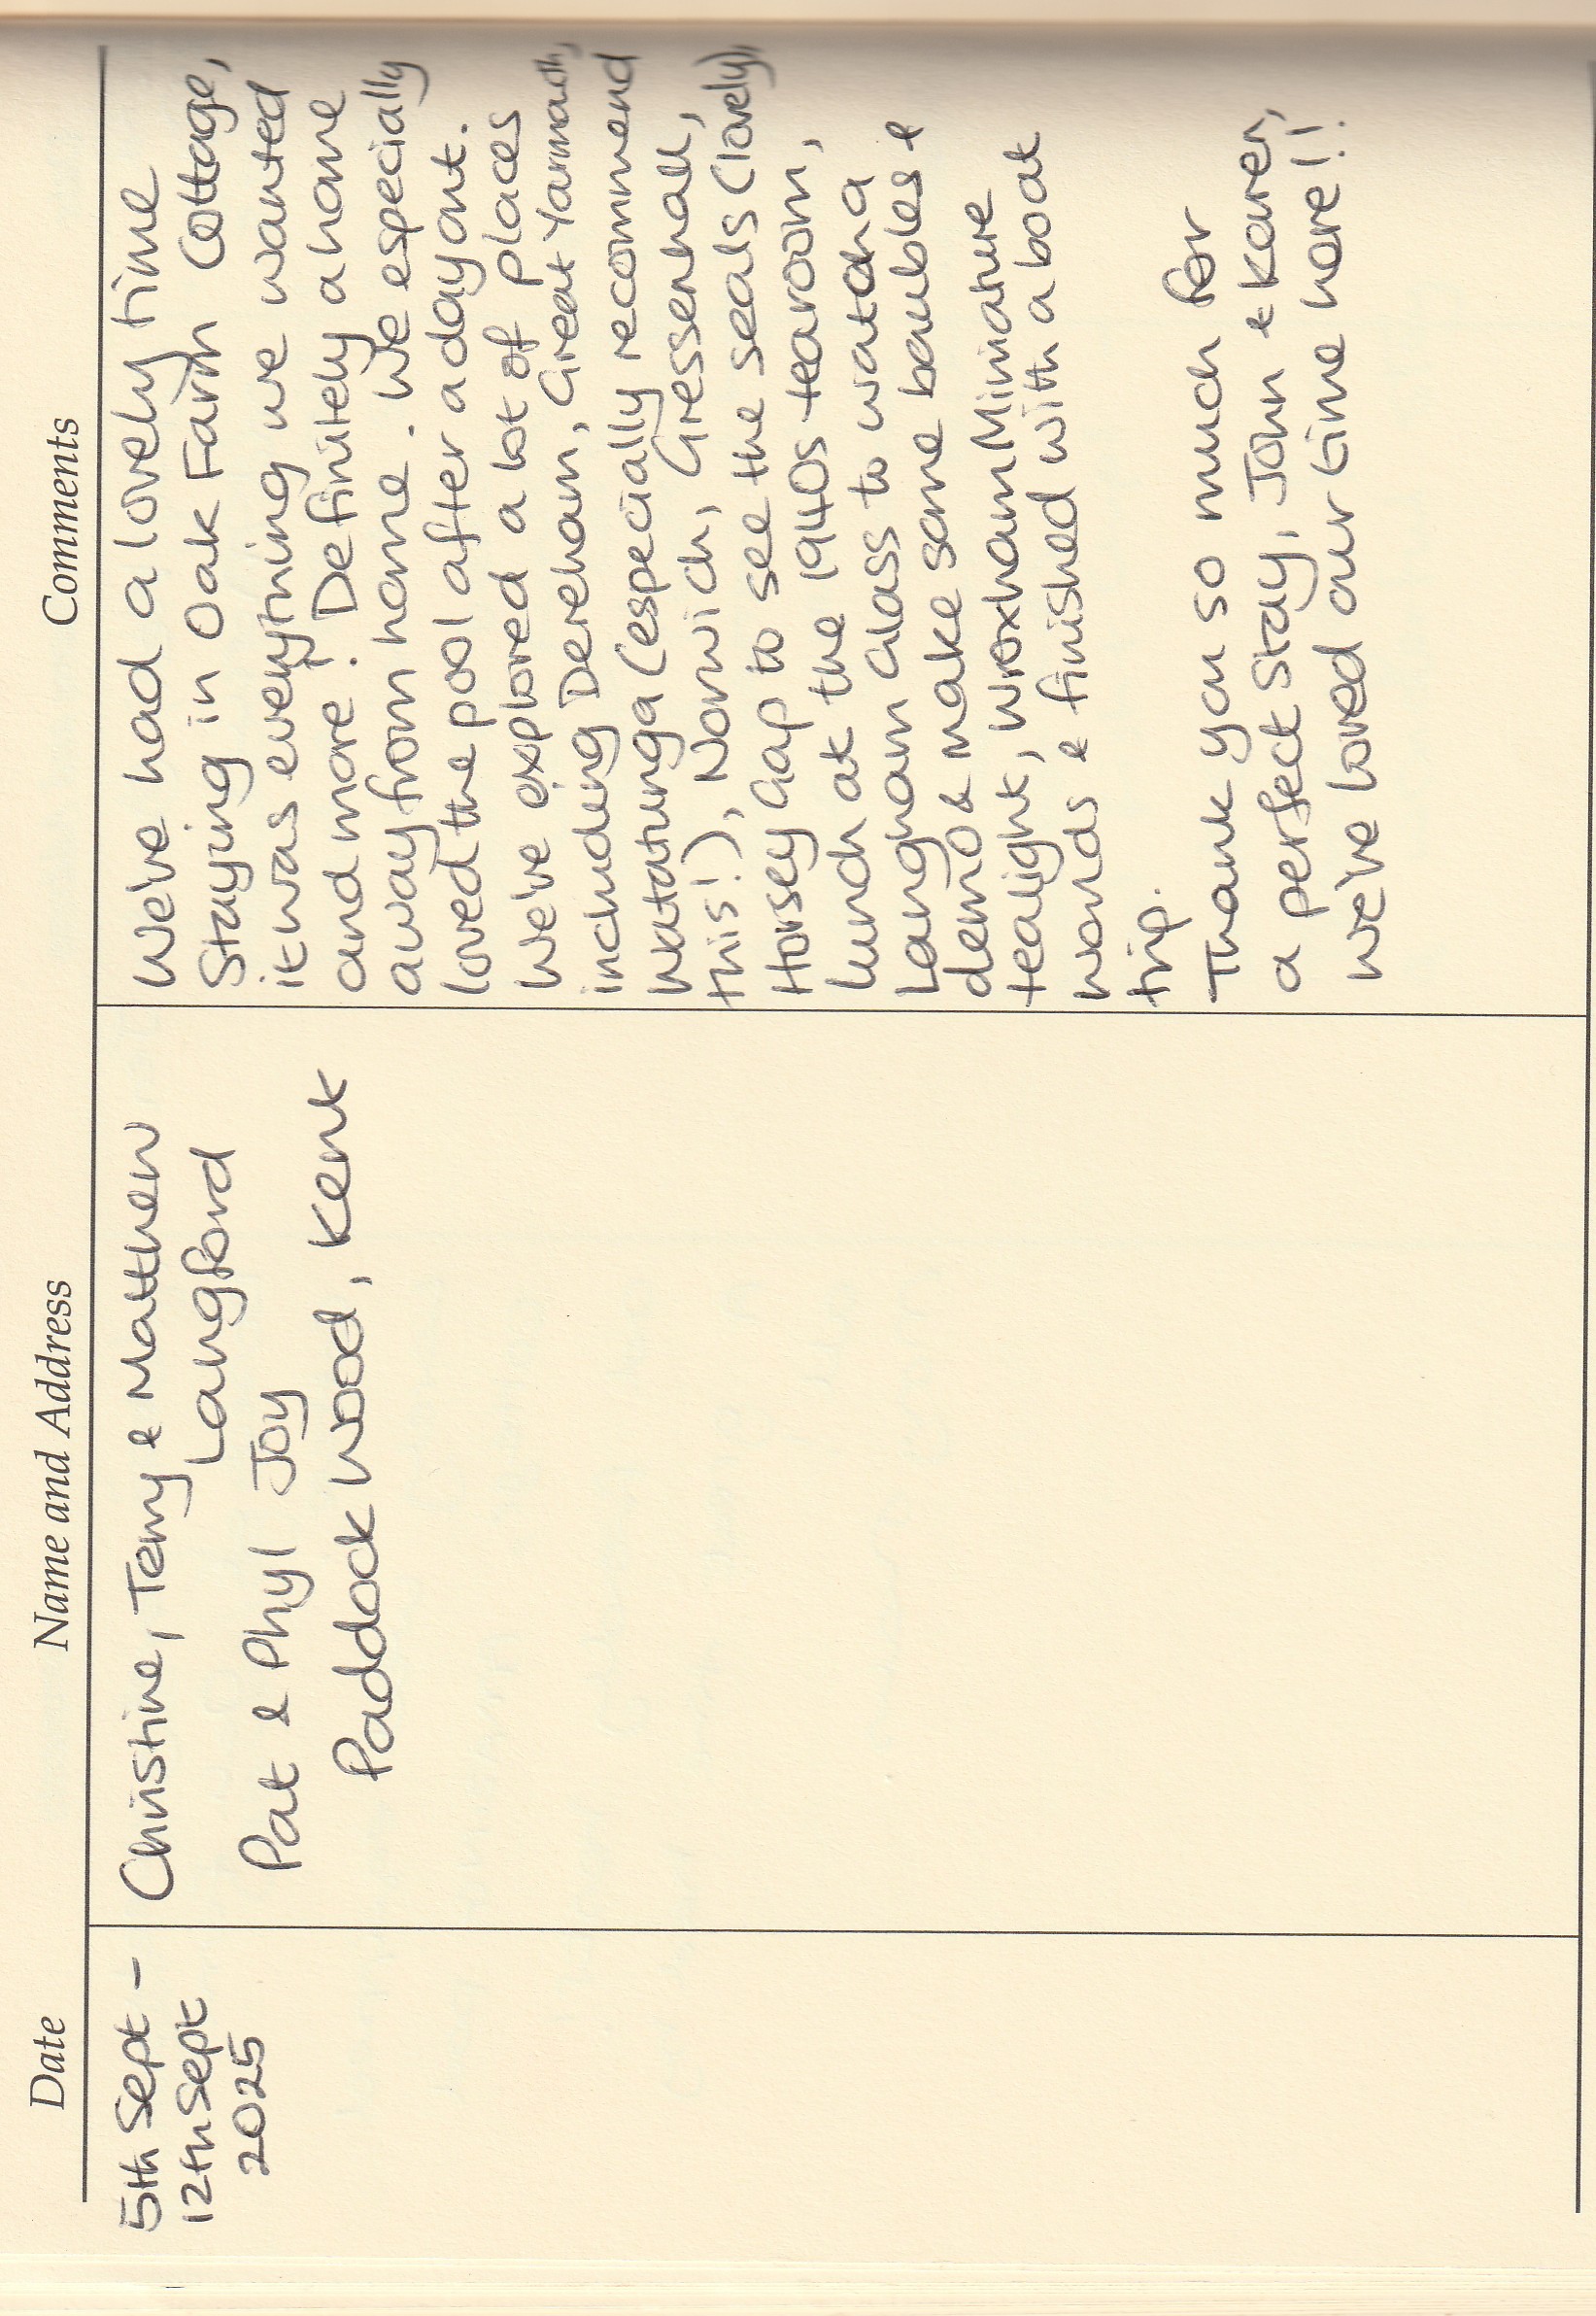 Date
Name and Address
Comments
5th Sept -
12th Sept
2025
Christine, Terry & Matthew
Langford
Pat & Phyl Joy
Paddock Wood, Kent
We've had a lovely time
staying in Oak Farm Cottage,
it was everything we wanted
and more! Definitely a home
away from home. We especially
loved the pool after a day out.
We've explored a lot of places
including Dereham, Great Yarmouth,
Watatunga (especially recommend
this!), Norwich, Gressenhall,
Horsey Gap to see the seals (lovely),
lunch at the 1940s tearoom,
Langham Glass to watch a
demo & make some baubles &
tealight, Wroxham Miniature
worlds & finished with a boat
trip.
Thank you so much for
a perfect stay, John & Karen,
we've loved our time here!!